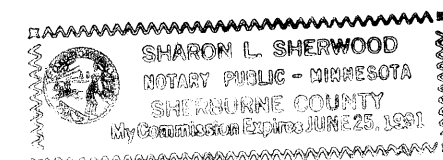 SHARON L. SHERWOOD
NOTARY PUBLIC - MINNESOTA
SHERBURNE COUNTY
My Commission Expires JUNE 25, 1991